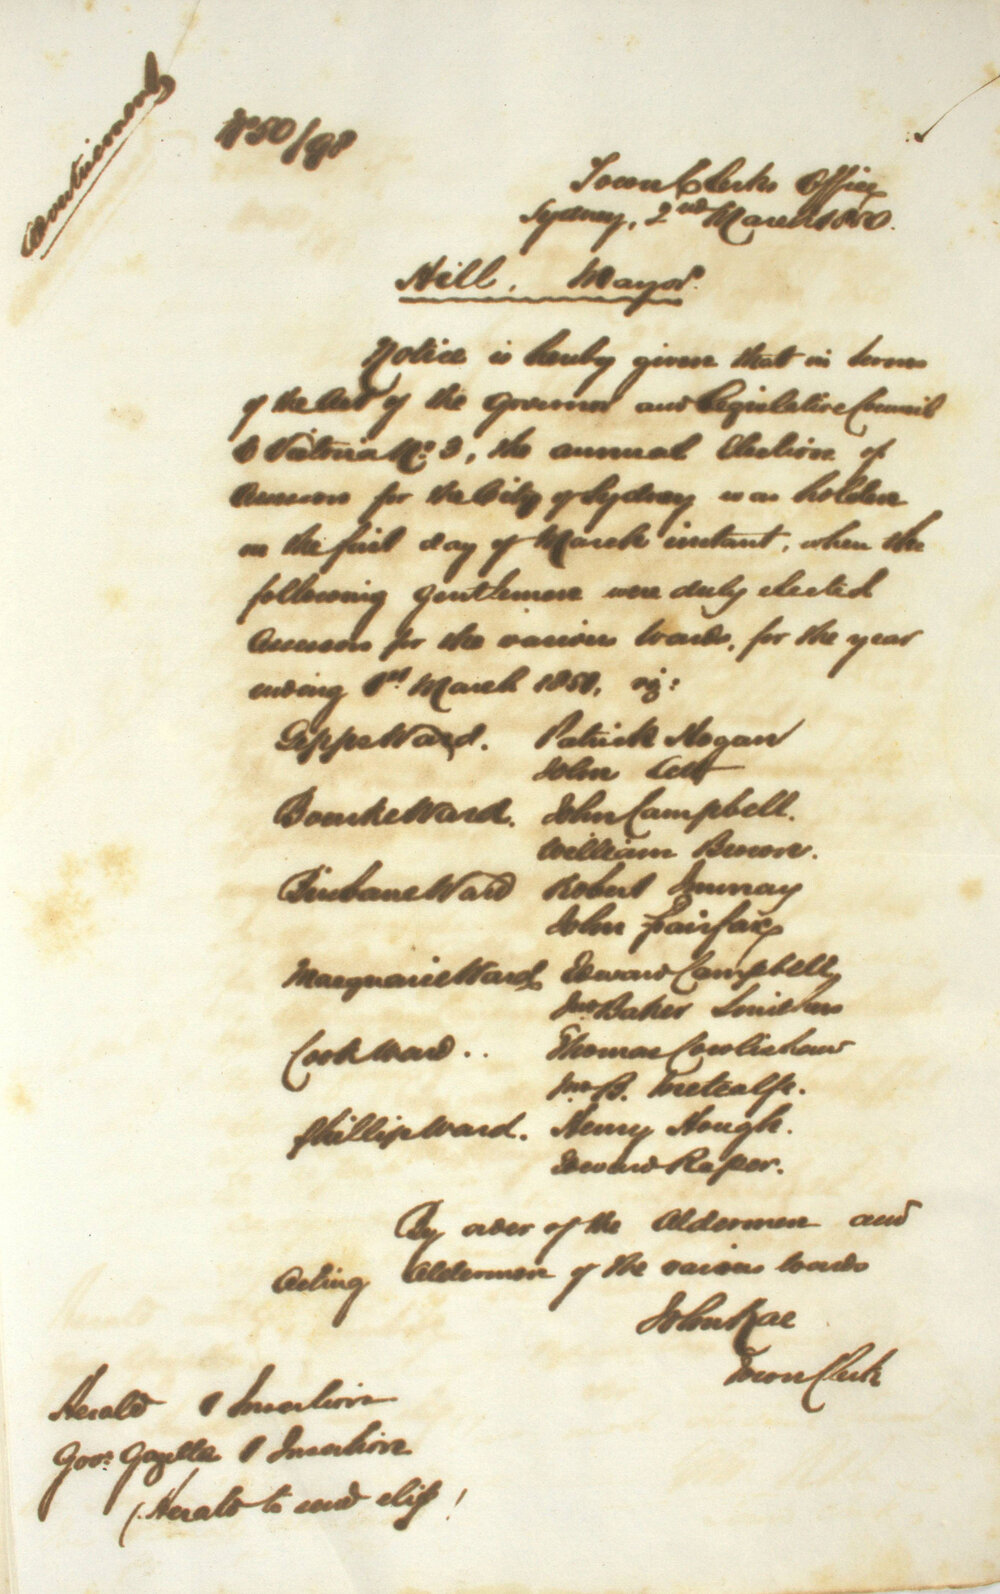 Advertisement
No 50/98
Town Clerks Office
Sydney, 2nd March 1850.
Hill, Mayor.
Notice is hereby given that in terms
of the Act of the Governor and Legislative Council
Victoria No. 3, the annual Election of
Assessors for the City of Sydney was holden
on the first day of March instant, when the
following gentlemen were duly elected
Assessors for the various wards, for the year
ending 1st March 1851, viz:
Gipps Ward. Patrick Hogan
John
Bourke Ward. John Campbell.
William Brown.
Brisbane Ward Robert Murray
John Fairfax
Macquarie Ward Edward Campbell
Jno Baker Smithers
Cook Ward .. Thomas Cowlishaw
Jno B. Metcalfe.
Phillip Ward. Henry Hough.
Edward Raper.
By order of the Aldermen and
Acting Aldermen of the various wards
John Rae
Town Clerk
Herald 1 Insertion
Govt Gazette 1 Insertion
(Herald to send slip)